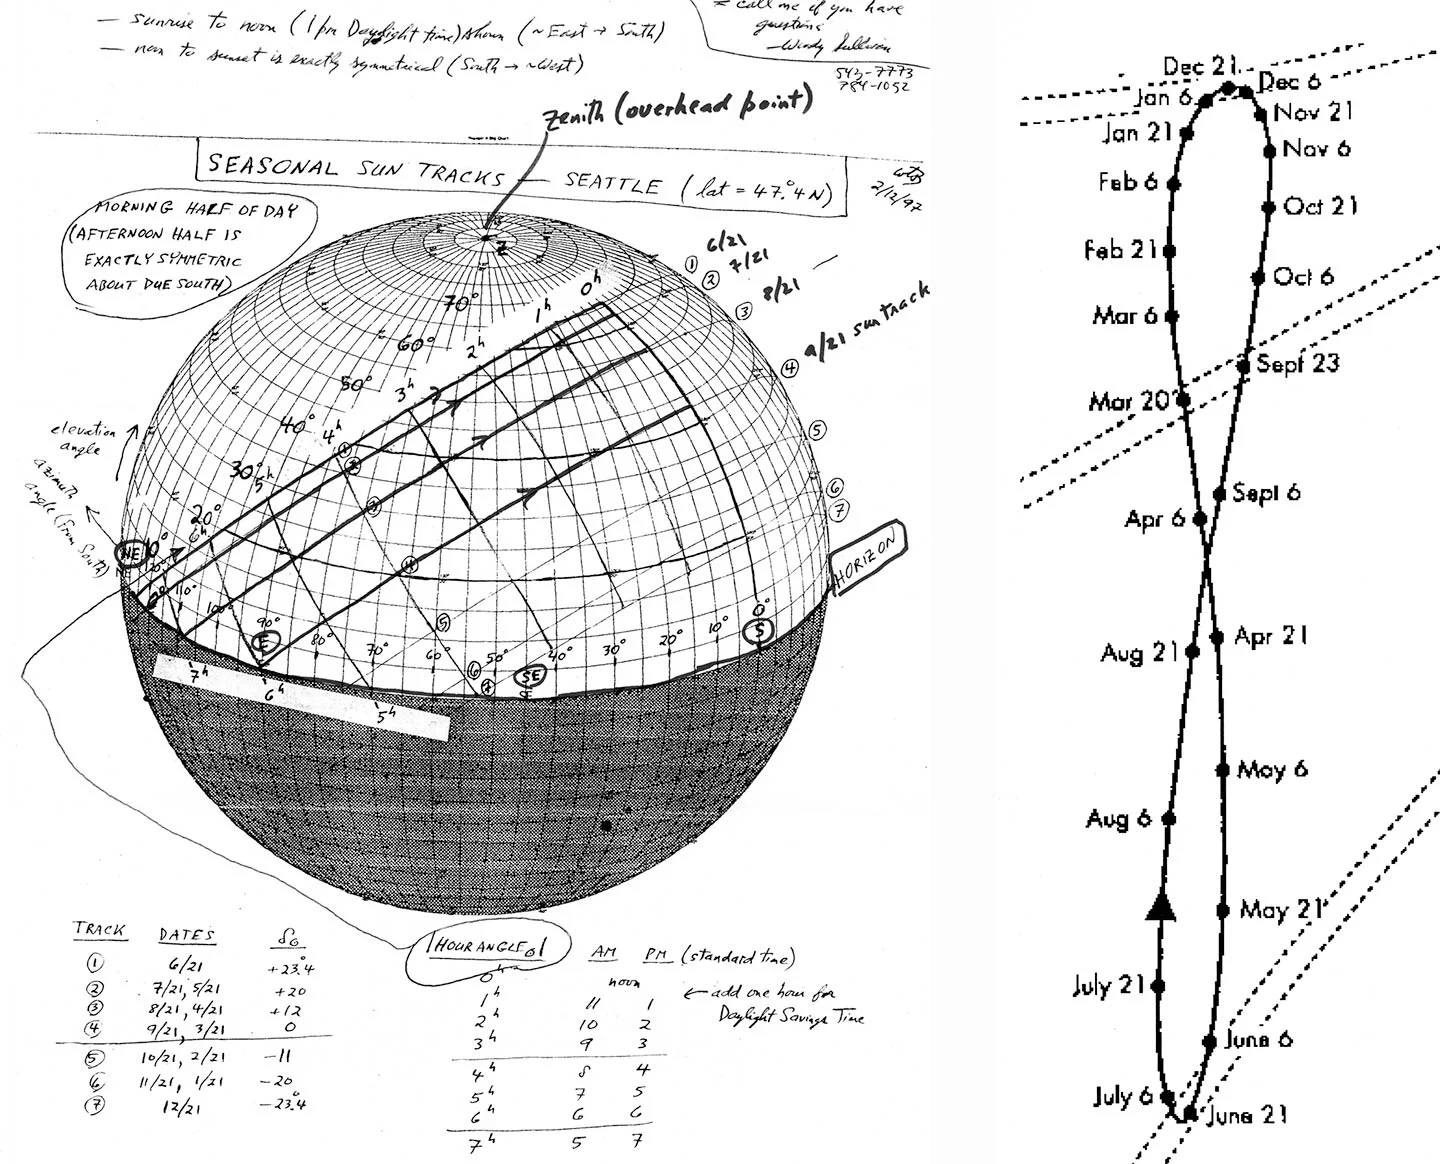 — sunrise to noon (1 pm Daylight time) shown (~East → South)
— noon to sunset is exactly symmetrical (South → ~West)
* call me if you have
questions
—Woody Sullivan
543-7773
784-1052
zenith (overhead point)
SEASONAL SUN TRACKS — SEATTLE (lat = 47.°4 N)
2/12/97
MORNING HALF OF DAY
(AFTERNOON HALF IS
EXACTLY SYMMETRIC
ABOUT DUE SOUTH)
Z
6/21
7/21
8/21
9/21 sun track
1
2
3
4
5
6
7
0h
1h
2h
3h
4h
5h
6h
70°
60°
50°
40°
30°
20°
10°
elevation
angle
azimuth
angle (from South)
NE
NE
1
2
3
4
5
6
7
HORIZON
120°
110°
100°
90°
80°
70°
60°
50°
40°
30°
20°
10°
0°
E
SE
S
7h
6h
5h
TRACK DATES δ⊙
1 6/21 +23.°4
2 7/21, 5/21 +20
3 8/21, 4/21 +12
4 9/21, 3/21 0
5 10/21, 2/21 -11
6 11/21, 1/21 -20
7 12/21 -23.°4
|HOUR ANGLE⊙| AM PM (standard time)
0h noon
1h 11 1
2h 10 2
3h 9 3
4h 8 4
5h 7 5
6h 6 6
7h 5 7
← add one hour for
Daylight Savings Time
Dec 21
Dec 6
Jan 6
Nov 21
Jan 21
Nov 6
Feb 6
Oct 21
Feb 21
Oct 6
Mar 6
Sept 23
Mar 20
Sept 6
Apr 6
Apr 21
Aug 21
May 6
Aug 6
May 21
July 21
June 6
July 6
June 21